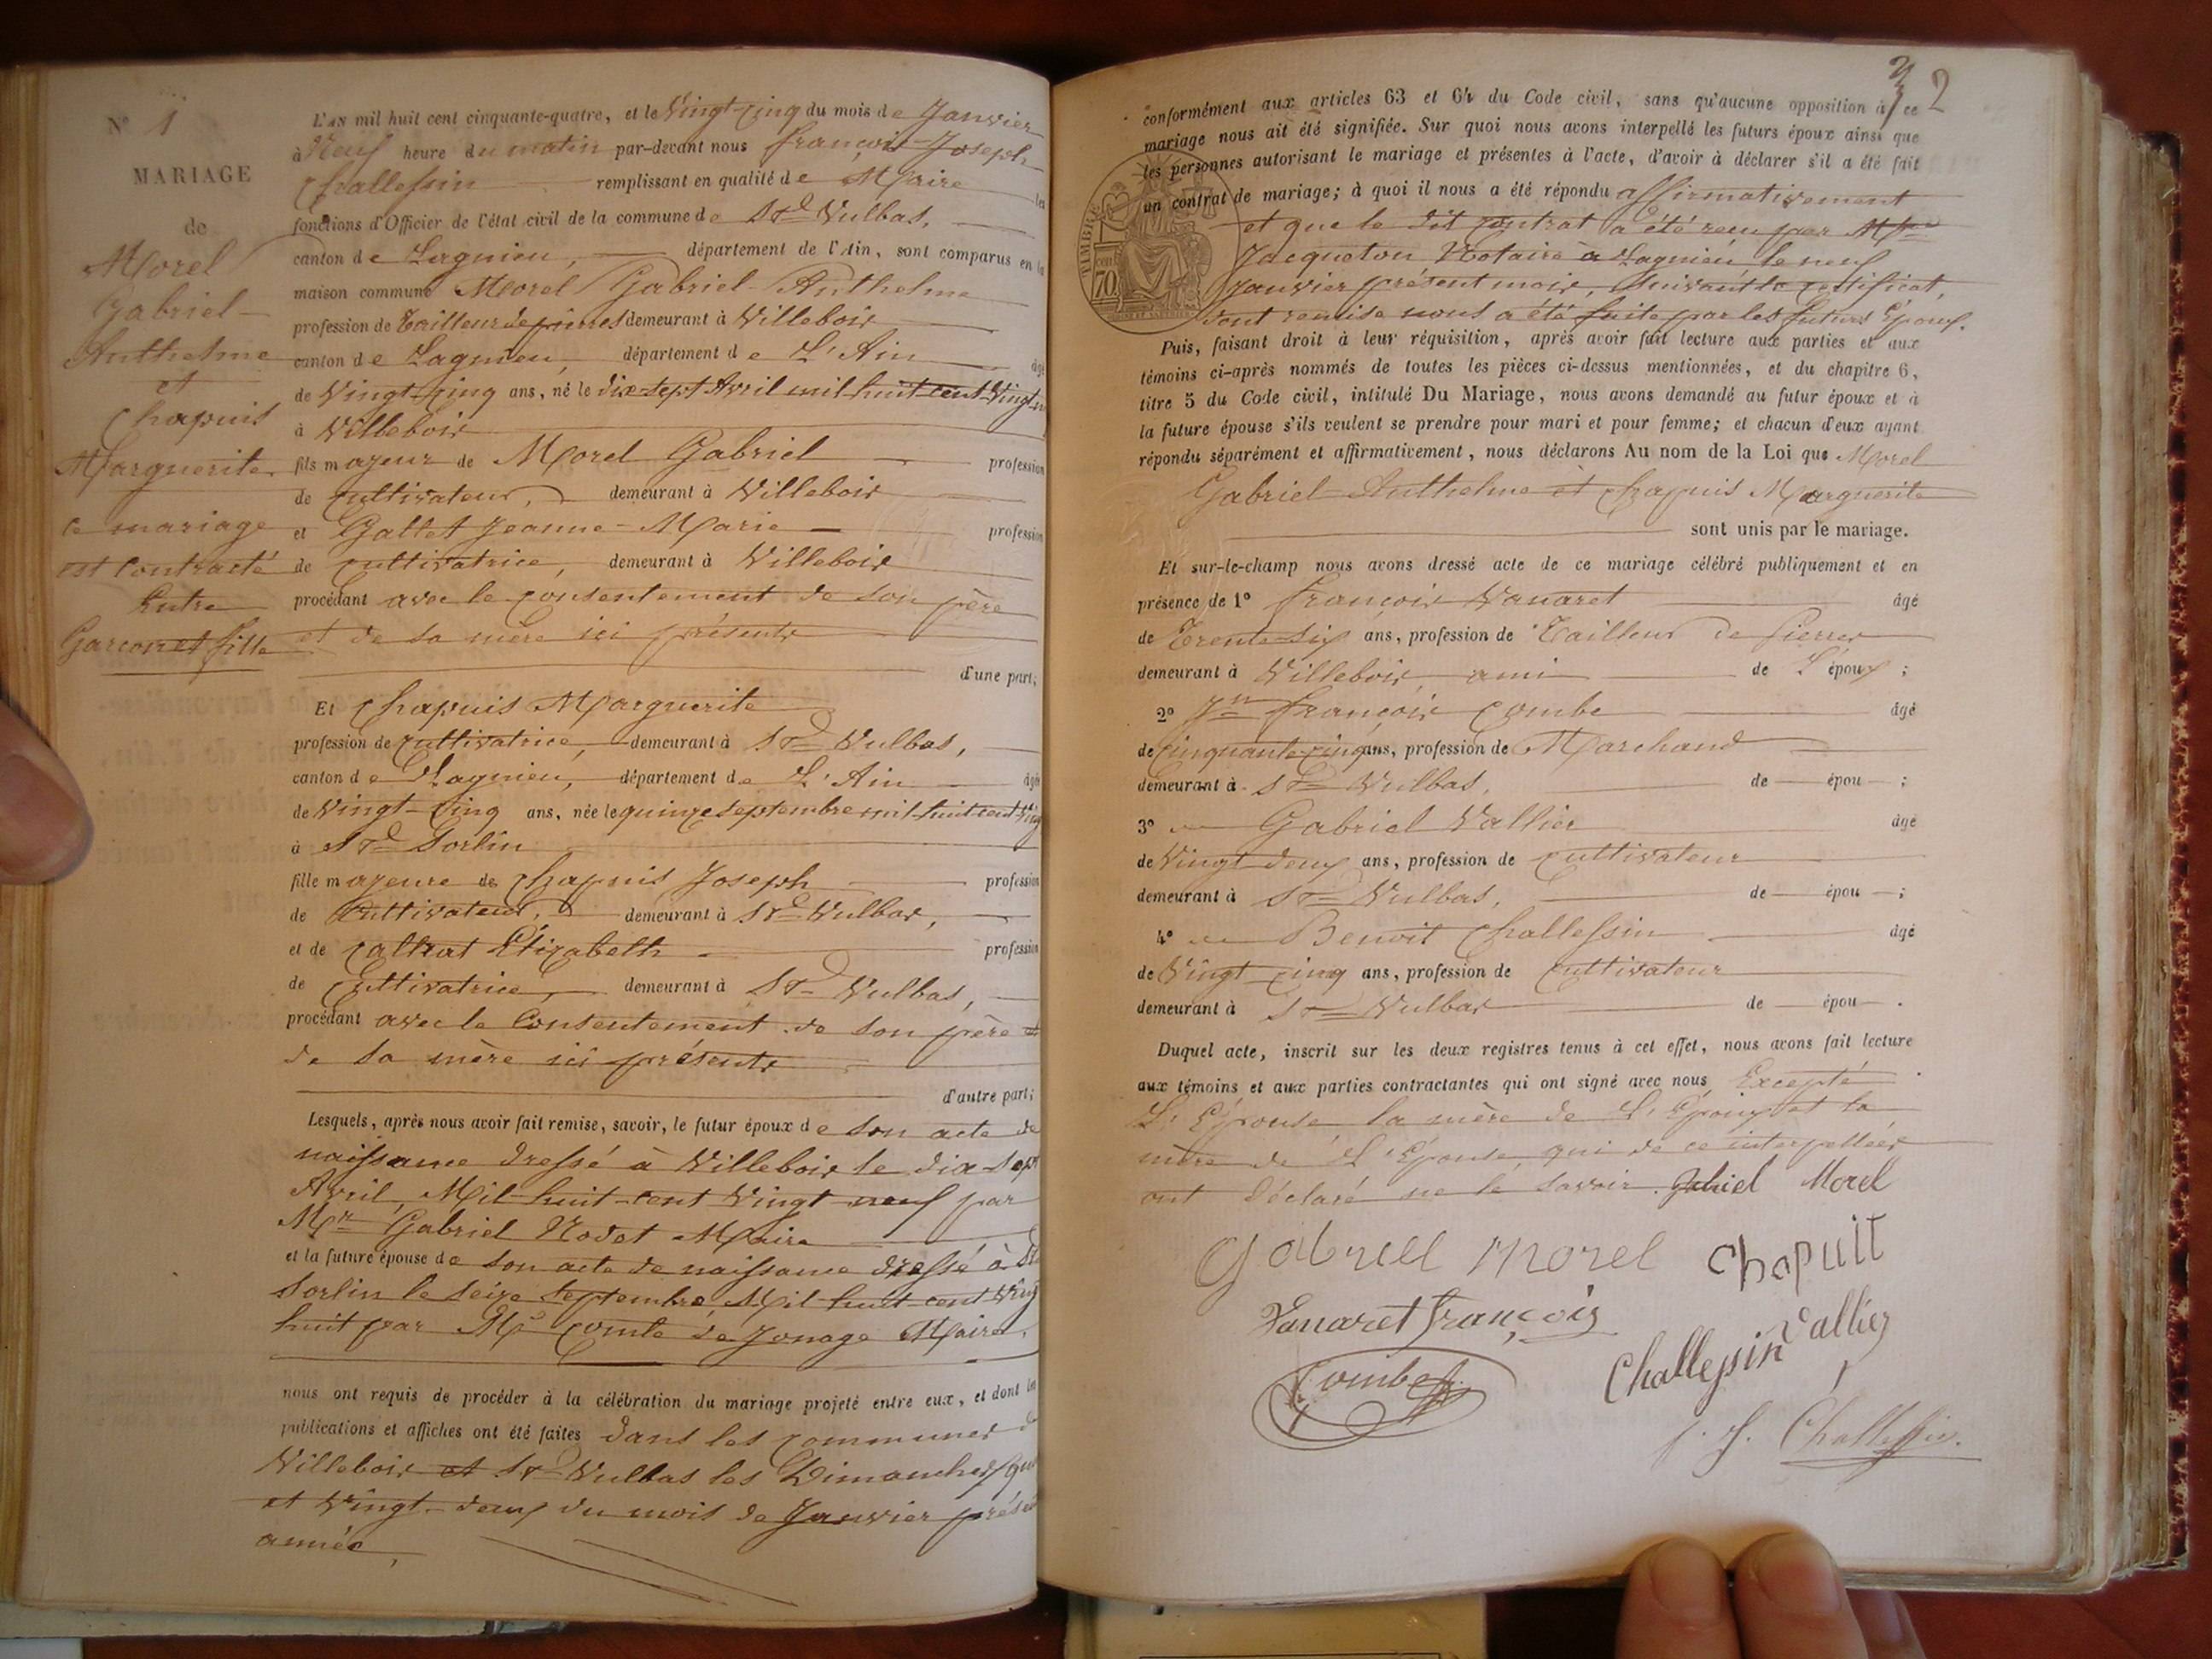 N° 1
MARIAGE
de
Morel
Gabriel-
Anthelme
et
Chapuis
Marguerite
Ce mariage
est Contracté
Entre
Garçon et fille
L'AN mil huit cent cinquante-quatre, et le Vingt-Cinq du mois de Janvier
à Neuf heure du matin par-devant nous François-Joseph
Challessin remplissant en qualité de Maire les
fonctions d'Officier de l'état civil de la commune de St Vulbas,
canton de Lagnieu, département de l'Ain, sont comparus en la
maison commune Morel Gabriel-Anthelme
profession de Tailleur de pierres demeurant à Villebois
canton de Lagnieu, département de L'Ain âgé
de Vingt-Cinq ans, né le dix-sept Avril mil-huit-cent-Vingt-
à Villebois
fils majeur de Morel Gabriel profession
de Cultivateur, demeurant à Villebois
et Gallet Jeanne-Marie profession
de Cultivatrice, demeurant à Villebois
procédant avec le Consentement de son père
et de sa mère ici présents
d'une part;
Et Chapuis Marguerite
profession de Cultivatrice, demeurant à St Vulbas,
canton de Lagnieu, département de L'Ain âgée
de Vingt-Cinq ans, née le quinze septembre mil-huit-cent-
à St Sorlin
fille majeure de Chapuis Joseph profession
de Cultivateur, demeurant à St Vulbas,
et de Elizabeth profession
de Cultivatrice, demeurant à St Vulbas,
procédant avec le Consentement de son père et
de sa mère ici présents
d'autre part;
Lesquels, après nous avoir fait remise, savoir, le futur époux de son acte de
naissance dressé à Villebois le dix-sept
Avril, Mil-huit-cent Vingt-neuf par
Mr Gabriel Nodet Maire
et la future épouse de son acte de naissance dressé à St
Sorlin le seize septembre, Mil-huit-cent-Vingt
huit par Mr Comte de Jonage Maire.
nous ont requis de procéder à la célébration du mariage projeté entre eux, et dont les
publications et affiches ont été faites dans les communes de
Villebois et St Vulbas les Dimanches
et Vingt-deux du mois de Janvier présente
année,
2
conformément aux articles 63 et 64 du Code civil, sans qu'aucune opposition à ce
mariage nous ait été signifiée. Sur quoi nous avons interpellé les futurs époux ainsi que
les personnes autorisant le mariage et présentes à l'acte, d'avoir à déclarer s'il a été fait
un contrat de mariage; à quoi il nous a été répondu affirmativement
et que le dit contrat a été reçu par
Jacqueton Notaire à Lagnieu le neuf
Janvier présent mois, suivant le certificat,
dont remise nous a été faite par les futurs Époux.
TIMBRE
70
Puis, faisant droit à leur réquisition, après avoir fait lecture aux parties et aux
témoins ci-après nommés de toutes les pièces ci-dessus mentionnées, et du chapitre 6,
titre 5 du Code civil, intitulé Du Mariage, nous avons demandé au futur époux et à
la future épouse s'ils veulent se prendre pour mari et pour femme; et chacun d'eux ayant
répondu séparément et affirmativement, nous déclarons Au nom de la Loi que Morel
Gabriel Anthelme et Chapuis Marguerite
sont unis par le mariage.
Et sur-le-champ nous avons dressé acte de ce mariage célébré publiquement et en
présence de 1° François Vanaret âgé
de Trente-six ans, profession de Tailleur de pierres
demeurant à Villebois, ami de L'époux;
2° Jn François Combe âgé
de Cinquante-Cinq ans, profession de Marchand
demeurant à St Vulbas, de épou ;
3° Gabriel Vallier âgé
de Vingt deux ans, profession de Cultivateur
demeurant à St Vulbas, de épou ;
4° Benoit Challessin âgé
de Vingt-Cinq ans, profession de Cultivateur
demeurant à St Vulbas de épou .
Duquel acte, inscrit sur les deux registres tenus à cet effet, nous avons fait lecture
aux témoins et aux parties contractantes qui ont signé avec nous Excepté
L'Épouse la mère de L'Époux et la
mère de L'Épouse, qui de ce interpellées
ont déclaré ne le savoir. Gabriel Morel
Gabriel Morel Chapuit
Vanaret François
Vallier
Challessin
Combe
f. J. Challessin.